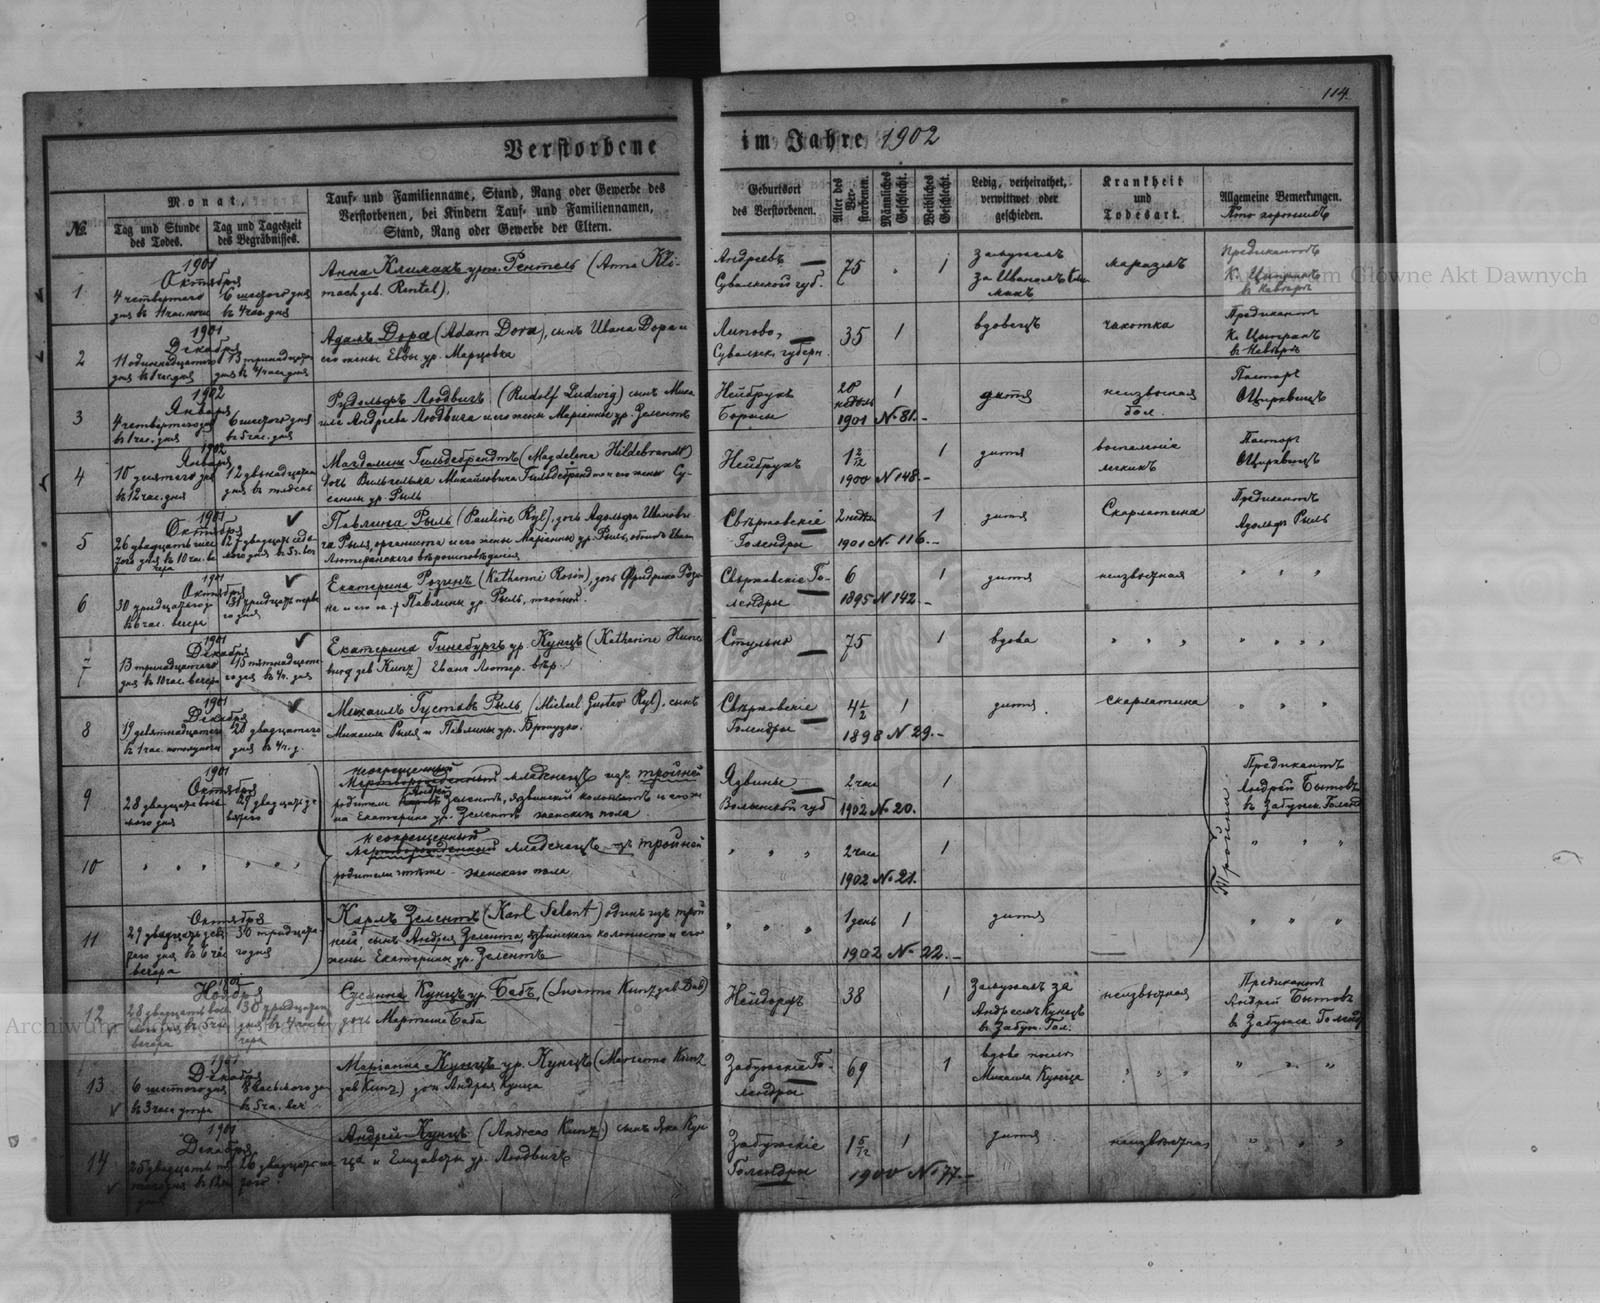 114.
Verstorbene im Jahre 1902
№.
Monat.
Tag und Stunde des Todes.
Tag und Tageszeit des Begräbnisses.
Tauf- und Familienname, Stand, Rang oder Gewerbe des
Verstorbenen, bei Kindern Tauf- und Familiennamen,
Stand, Rang oder Gewerbe der Eltern.
Geburtsort
des Verstorbenen.
Alter des Verstorbenen.
Männliches Geschlecht.
Weibliches Geschlecht.
Ledig, verheirathet,
verwittwet oder
geschieden.
Krankheit
und
Todesart.
Allgemeine Bemerkungen.
Кто хоронилъ
1
1901
Октября
4 четвертого
6 шестого дня
въ 4 час. дня
Анна Климахъ ур. Рентель (Anna Kli-
mach geb. Rental).
Андреевъ
Сувалкской губ.
75
1
Замужемъ
за Иваномъ Климахъ
маразмъ
Предикантъ
К. Ципранъ
2
1901
Декабря
11 одиннадцатого
13 тринадцатого
дня въ 1 час. дня
дня въ 4 час. дня
Адамъ Дора (Adam Dora), сынъ Ивана Дора и
его жены Евы ур. Марцовка
Липово,
Сувалкск. губерн.
35
1
вдовецъ
чахотка
Предикантъ
К. Ципранъ
3
1902
Января
4 четвертого дня
6 шестого дня
въ 1 час. дня
въ 5 час. дня
Рудольфъ Людвигъ (Rudolf Ludwig) сынъ Миха
ила Андреева Людвига и его жены Марiанны ур. Зелентъ
Нейбрухъ
20 недѣль
1
1901 № 81.-
дитя
неизвѣстная
бол.
Пасторъ
4
1902
Января
10 десятого дня
12 двѣнадцатого
въ 12 час. дня
Магдалина Гильдебрендтъ (Magdelena Hildebrandt)
дочь Вильгельма Михайловича Гильдебрендта и его жены Су-
санны ур. Рыль
Нейбрухъ
1 2/12
1
1900 № 148.-
дитя
воспаленiе
легкихъ
Пасторъ
5
1901
Октября
26 двадцать шес
27 двадцать седь
Павлина Рыль (Pauline Ryl), дочь Адольфа Иванови
ча Рыля, органиста и его жены Марiанны ур. Рыль,
Лютеранскаго вѣроисповѣданiя
Свержовскiе
Голендры
2 недѣли
1
1901 № 116.-
дитя
Скарлатина
Предикантъ
Адольфъ Рыль
6
1901
Октября
30 тридцатого
31 тридцать перва
въ 6 час. вечера
го дня
Екатерина Розинъ (Katharine Rosin), дочь Фридриха Рози
на и его ж. † Павлины ур. Рыль,
Свержовскiе Го-
лендры
6
1
1895 № 142.-
дитя
неизвѣстная
" " "
7
1901
Декабря
13 тринадцатого
15 пятнадцата
дня въ 10 час. вечера
го дня въ 4 ч. дня
Екатерина Гинебургъ ур. Кунцъ (Katharine Hune
burg geb Kunz) Еванг Лютер. вѣр.
Стульно
75
1
вдова
" " "
" " " "
8
1901
Декабря
19 девятнадцатого
20 двадцатого
въ 1 час. пополуночи
дня въ 4 ч. д.
Михаилъ Густавъ Рыль (Michael Gustav Ryl), сынъ
Михаила Рыля и Павлины ур.
Свержовскiе
Голендры
4 1/2
1
1898 № 29.-
дитя
скарлатина
" " "
9
1901
Октября
28 двадцать вось
29 двадцать де
мого дня
вятого
некрещенный
Мертворожденный младенецъ изъ тройней
родители Андрей Зелентъ, Язвинскiй колонистъ и его же
на Екатерина ур. Зелентъ женскаго пола
Язвины
Волынской губ
2 часа
1
1902 № 20.
Предикантъ
Андрей Бытовъ
въ Забужск. Голенд
Тройни
10
" " "
" " "
некрещенный
Мертворожденный младенецъ изъ тройней
родители тѣже - женскаго пола
" " "
2 часа
1
1902 № 21.
" " "
11
Октября
29 двадцать девя
30 тридцата
того дня въ 6 час
го дня
вечера
Карлъ Зелентъ (Karl Selent) одинъ изъ трой
ней, сынъ Андрея Зелента, Язвинскаго колониста и его
жены Екатерины ур. Зелентъ
" " "
1 день
1
1902 № 22.-
дитя
" " "
12
1901
Ноября
28 двадцать вось
30 тридцатого
вечера
Сусанна Кунцъ ур. Бабъ, (Susanna Kunz geb Bab)
дочь Мартина Баба
Нейдорфъ
38
1
Замужемъ за
Андреемъ Кунцъ
въ Забуж. Гол.
неизвѣстная
Предикантъ
Андрей Бытовъ
въ Забужск. Голенд
13
1901
Декабря
6 шестого дня
8 восьмого дн
въ 3 часа утра
въ 5 ча. веч
Марiанна Кунцъ ур. Кунцъ (Marianna Kunz
geb Kunz) дочь Андрея Кунца
Забужскiе Го-
лендры
69
1
вдова послѣ
Михаила Кунца
" " "
" " "
14
1901
Декабря
25 двадцать пя
26 двадцать ше
стого
Андрей Кунцъ (Andreas Kunz) сынъ Яна Кун
ца и Елизаветы ур. Людвигъ
Забужскiе
Голендры
1 5/12
1
1900 № 77.-
дитя
неизвѣстная
" " "
Archiwum Główne Akt Dawnych
Archiwum